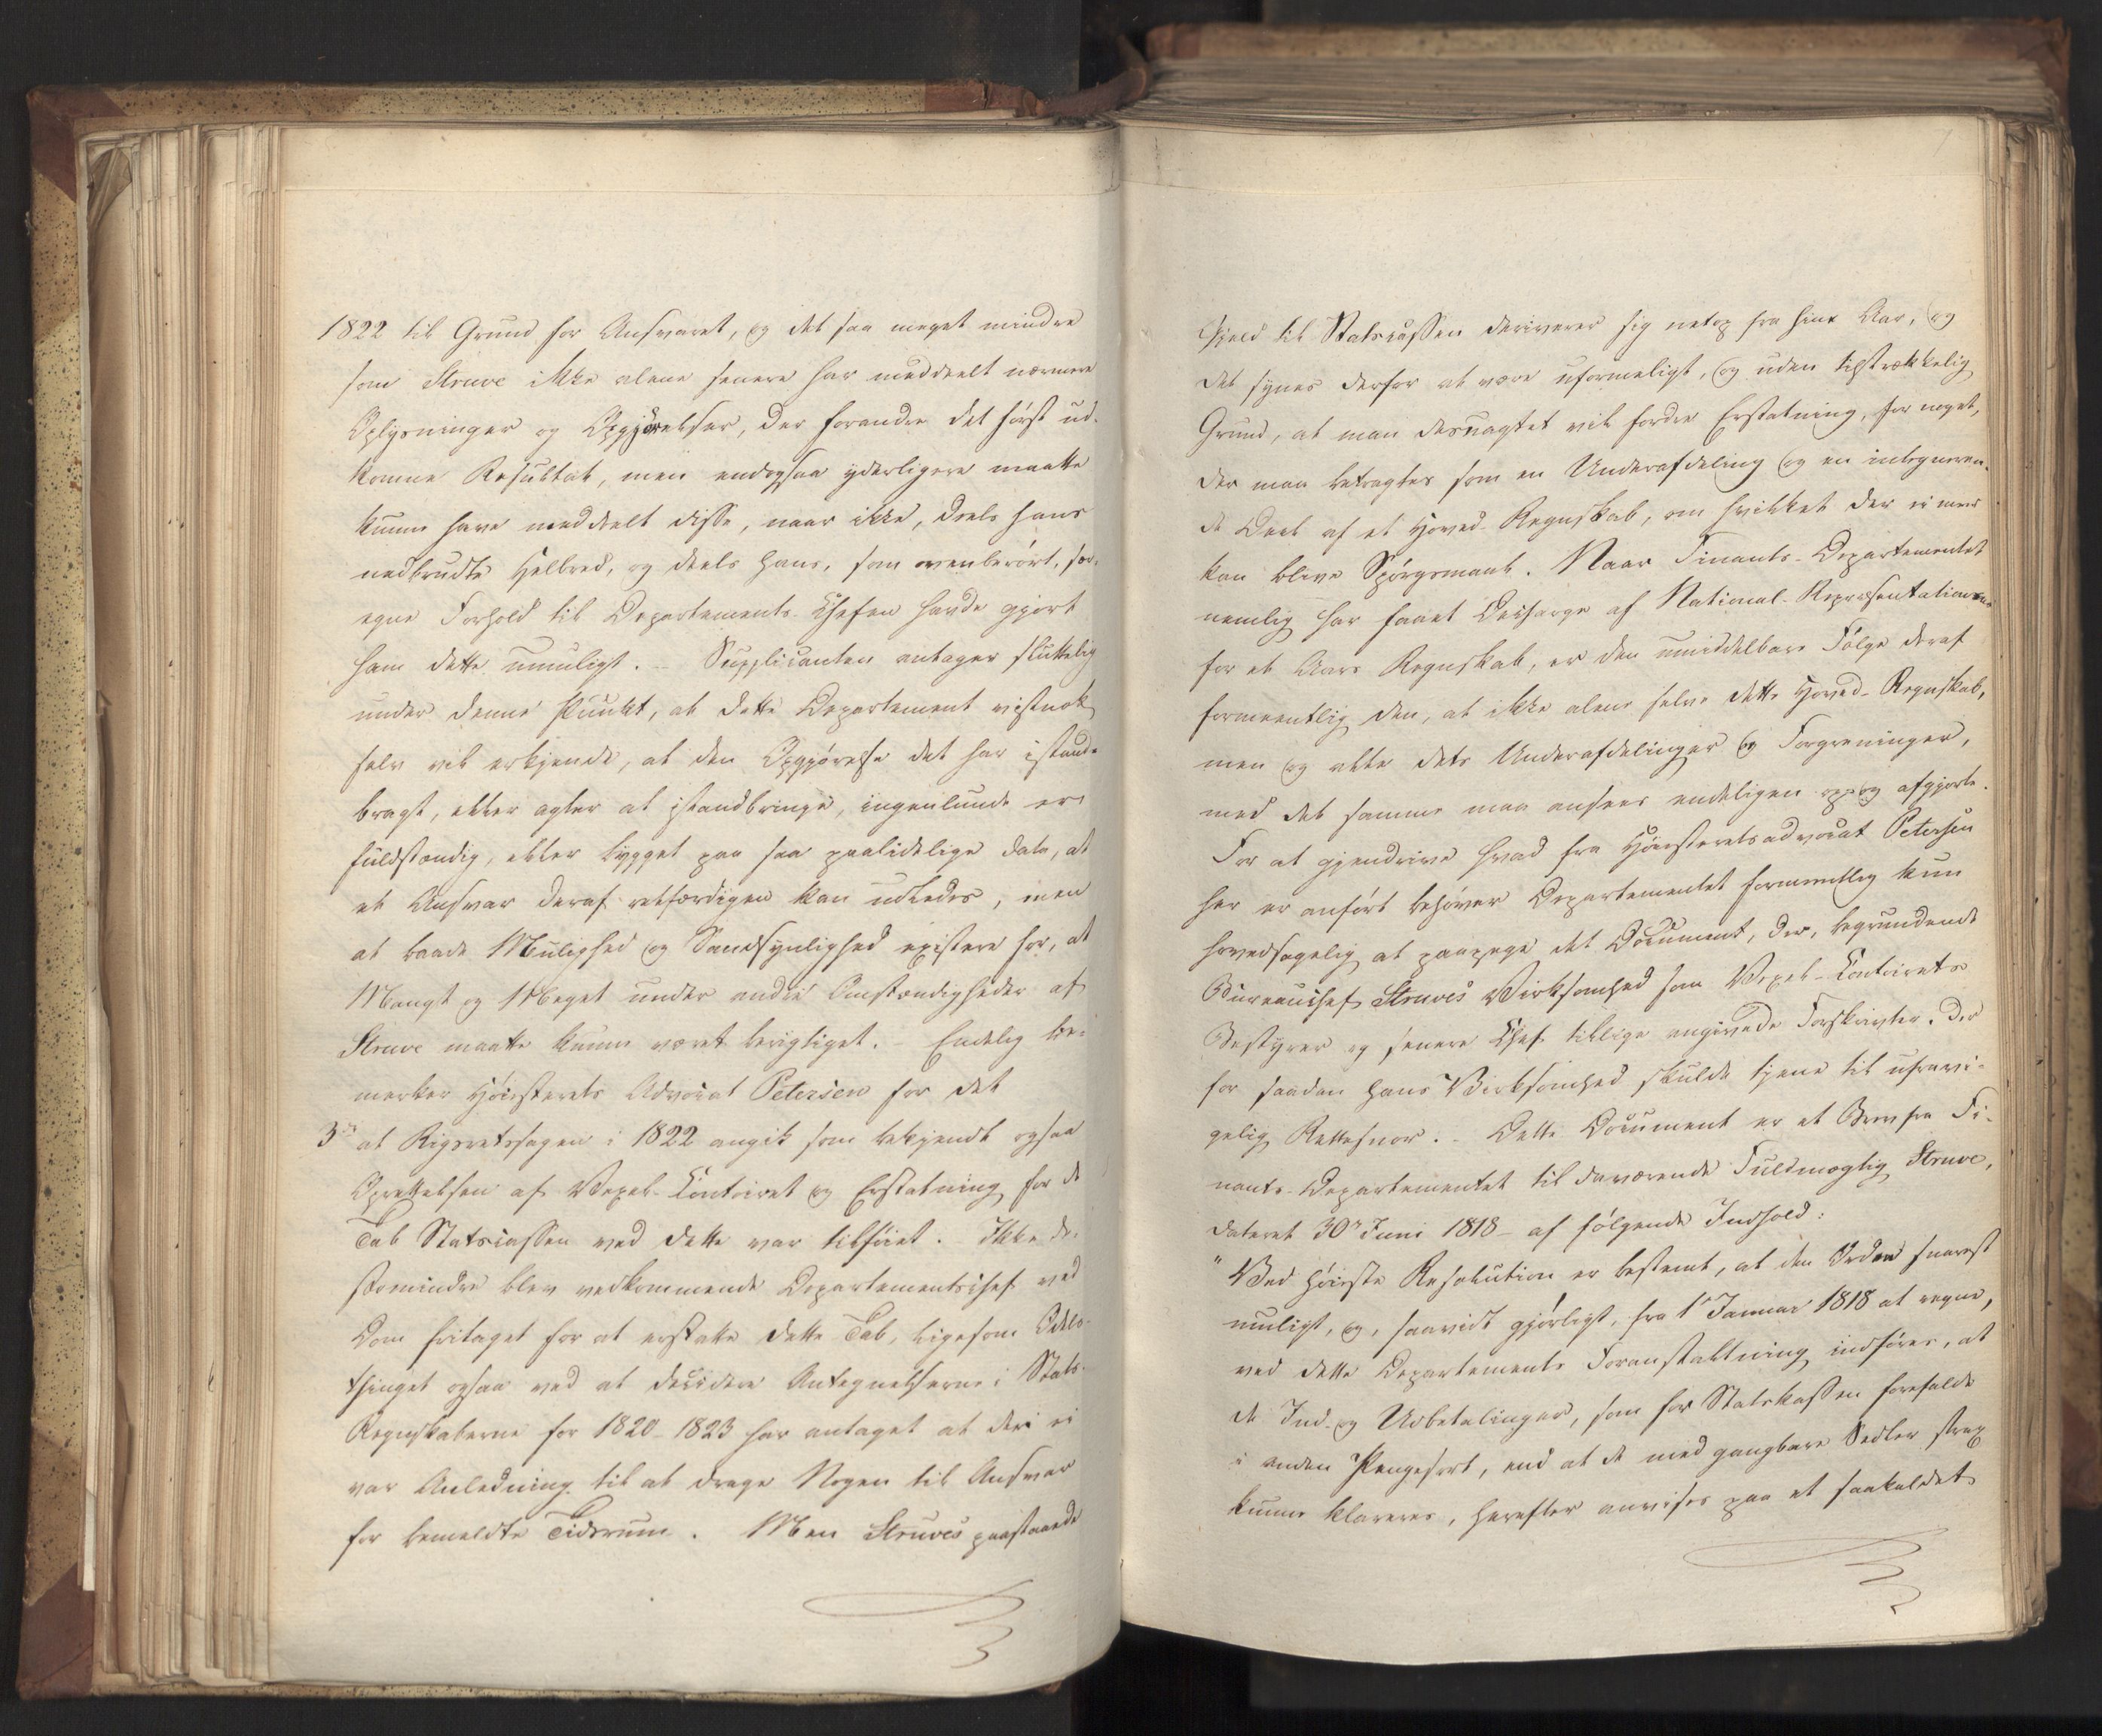 1822 til Grund for Ansvaret, og det saa meget mindre
som Struve ikke alene senere har meddeelt nærmere
Oplysninger og Opgjørelser, der forandre det først ud-
komne Resultat, men endogsaa yderligere maatte
kunne have meddeelt disse, naar ikke, deels hans
nedbrudte Helbred, og deels hans, som ovenberørt, sær-
egne Forhold til Departements-Chefen havde gjort
ham dette umuligt. – Supplicanten antager sluttelig
under denne Punkt, at dette Departement vistnok
selv vil erkjende, at den Opgjørelse det har istand-
bragt, eller agter at istandbringe, ingenlunde er
fuldstændig, eller bygget paa saa paalidelige data, at
et Ansvar deraf retfærdigen kan udledes, men
at baade Mulighed og Sandsynlighed existere for, at
Mangt og Meget under andre Omstændigheder af
Struve maatte kunne været berigtiget. – Endelig be-
mærker Høiesterets Advocat Petersen for det
3die at Rigsretssagen i 1822 angik som bekjendt ogsaa
Oprettelsen af Vexel-Contoiret og Erstatning for de
Tab Statscassen ved dette var tilføiet. Ikke de-
stomindre blev vedkommende Departementschef ved
Dom fritaget for at erstatte dette Tab, ligesom Odels-
thinget ogsaa ved at decidere Antegnelserne i Stats-
Regnskaberne for 1820–1823 har antaget at der ei
var Anledning til at drage Nogen til Ansvar
for bemeldte Tidsrum. Men Struves paastaaede
Gjeld til Statscassen deriverer sig netop fra hine Aar, og
det synes derfor at være uformeligt, og uden tilstrækkelig
Grund, at man desuagtet vil fordre Erstatning, for noget,
der maa betragtes som en Underafdeling og en integreren-
de Deel af et Hoved-Regnskab, om hvilket der ei meer
kan blive Spørgsmaal. Naar Finants-Departementet
nemlig har faaet Decharge af National-Repræsentationen
for et Aars Regnskab, er den umiddelbare Følge deraf
formeentlig den, at ikke alene selve dette Hoved-Regnskab,
men og alle dets Underafdelinger og Forgreninger,
med det samme maa ansees endeligen op- og afgjorte.
For at gjendrive hvad fra Høiesteretsadvocat Petersen
her er anført behøver Departementet formeentlig kun
hovedsagelig at paapege det Document, der, begrundende
Bureauchef Struves Virksomhed som Vexel-Contoirets
Bestyrer og senere Chef tillige angivede Forskrivter. der
for saadan hans Virksomhed skulde tjene til ufravi-
gelig Rettesnor. – Dette Document er et Brev fra Fi-
nants-Departementet til daværende Fuldmægtig Struve,
dateret 30te Juni 1818 – af følgende Indhold:
"Ved høieste Resolution er bestemt, at den Orden snarest
muligt, og, saavidt gjørligt, fra 1te Januar 1818 at regne,
ved dette Departements Foranstaltning indføres, at
de Ind- og Udbetalinger, som for Statskassen forefalde
i anden Pengesort, end at de med gangbare Sedler strax
kunne klareres, herefter anvises paa et saakaldet